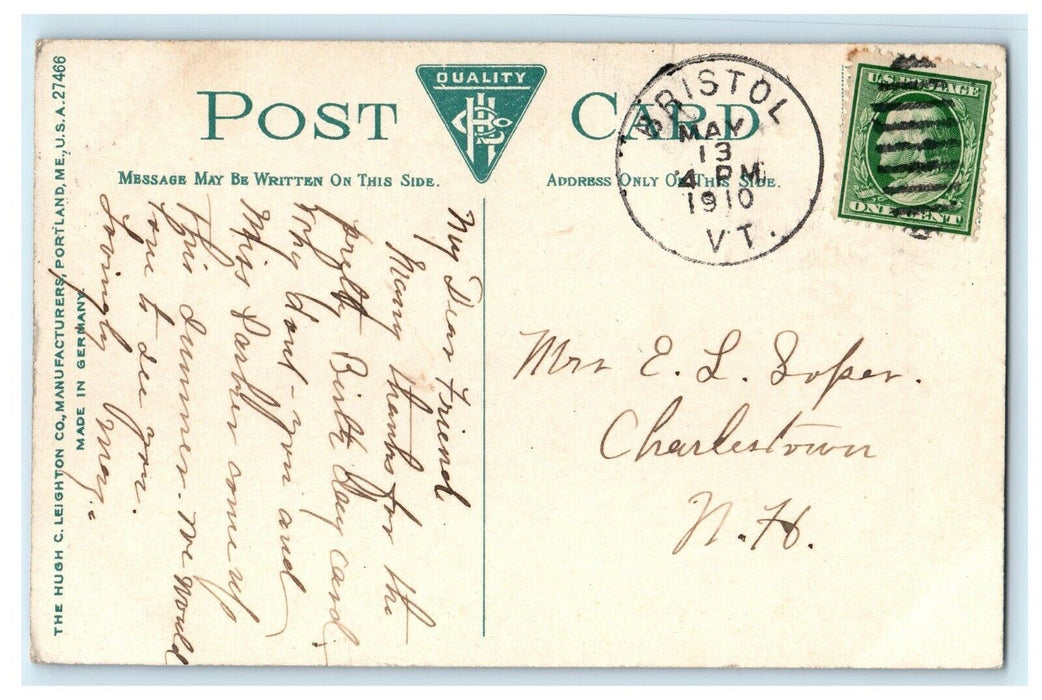 THE HUGH C. LEIGHTON CO., MANUFACTURERS, PORTLAND, ME., U.S.A. 27466
MADE IN GERMANY.
POST CARD
QUALITY
MESSAGE MAY BE WRITTEN ON THIS SIDE.
ADDRESS ONLY ON THIS SIDE.
BRISTOL
MAY
13
4 PM
1910
VT.
U.S. POSTAGE
ONE CENT
My Dear Friend
Many thanks for the
pretty Birth day card
Why dont you and
Miss Parker come up
this summer. We would
love to see you.
Lovingly May.
Mrs E. L. Soper.
Charlestown
N.H.